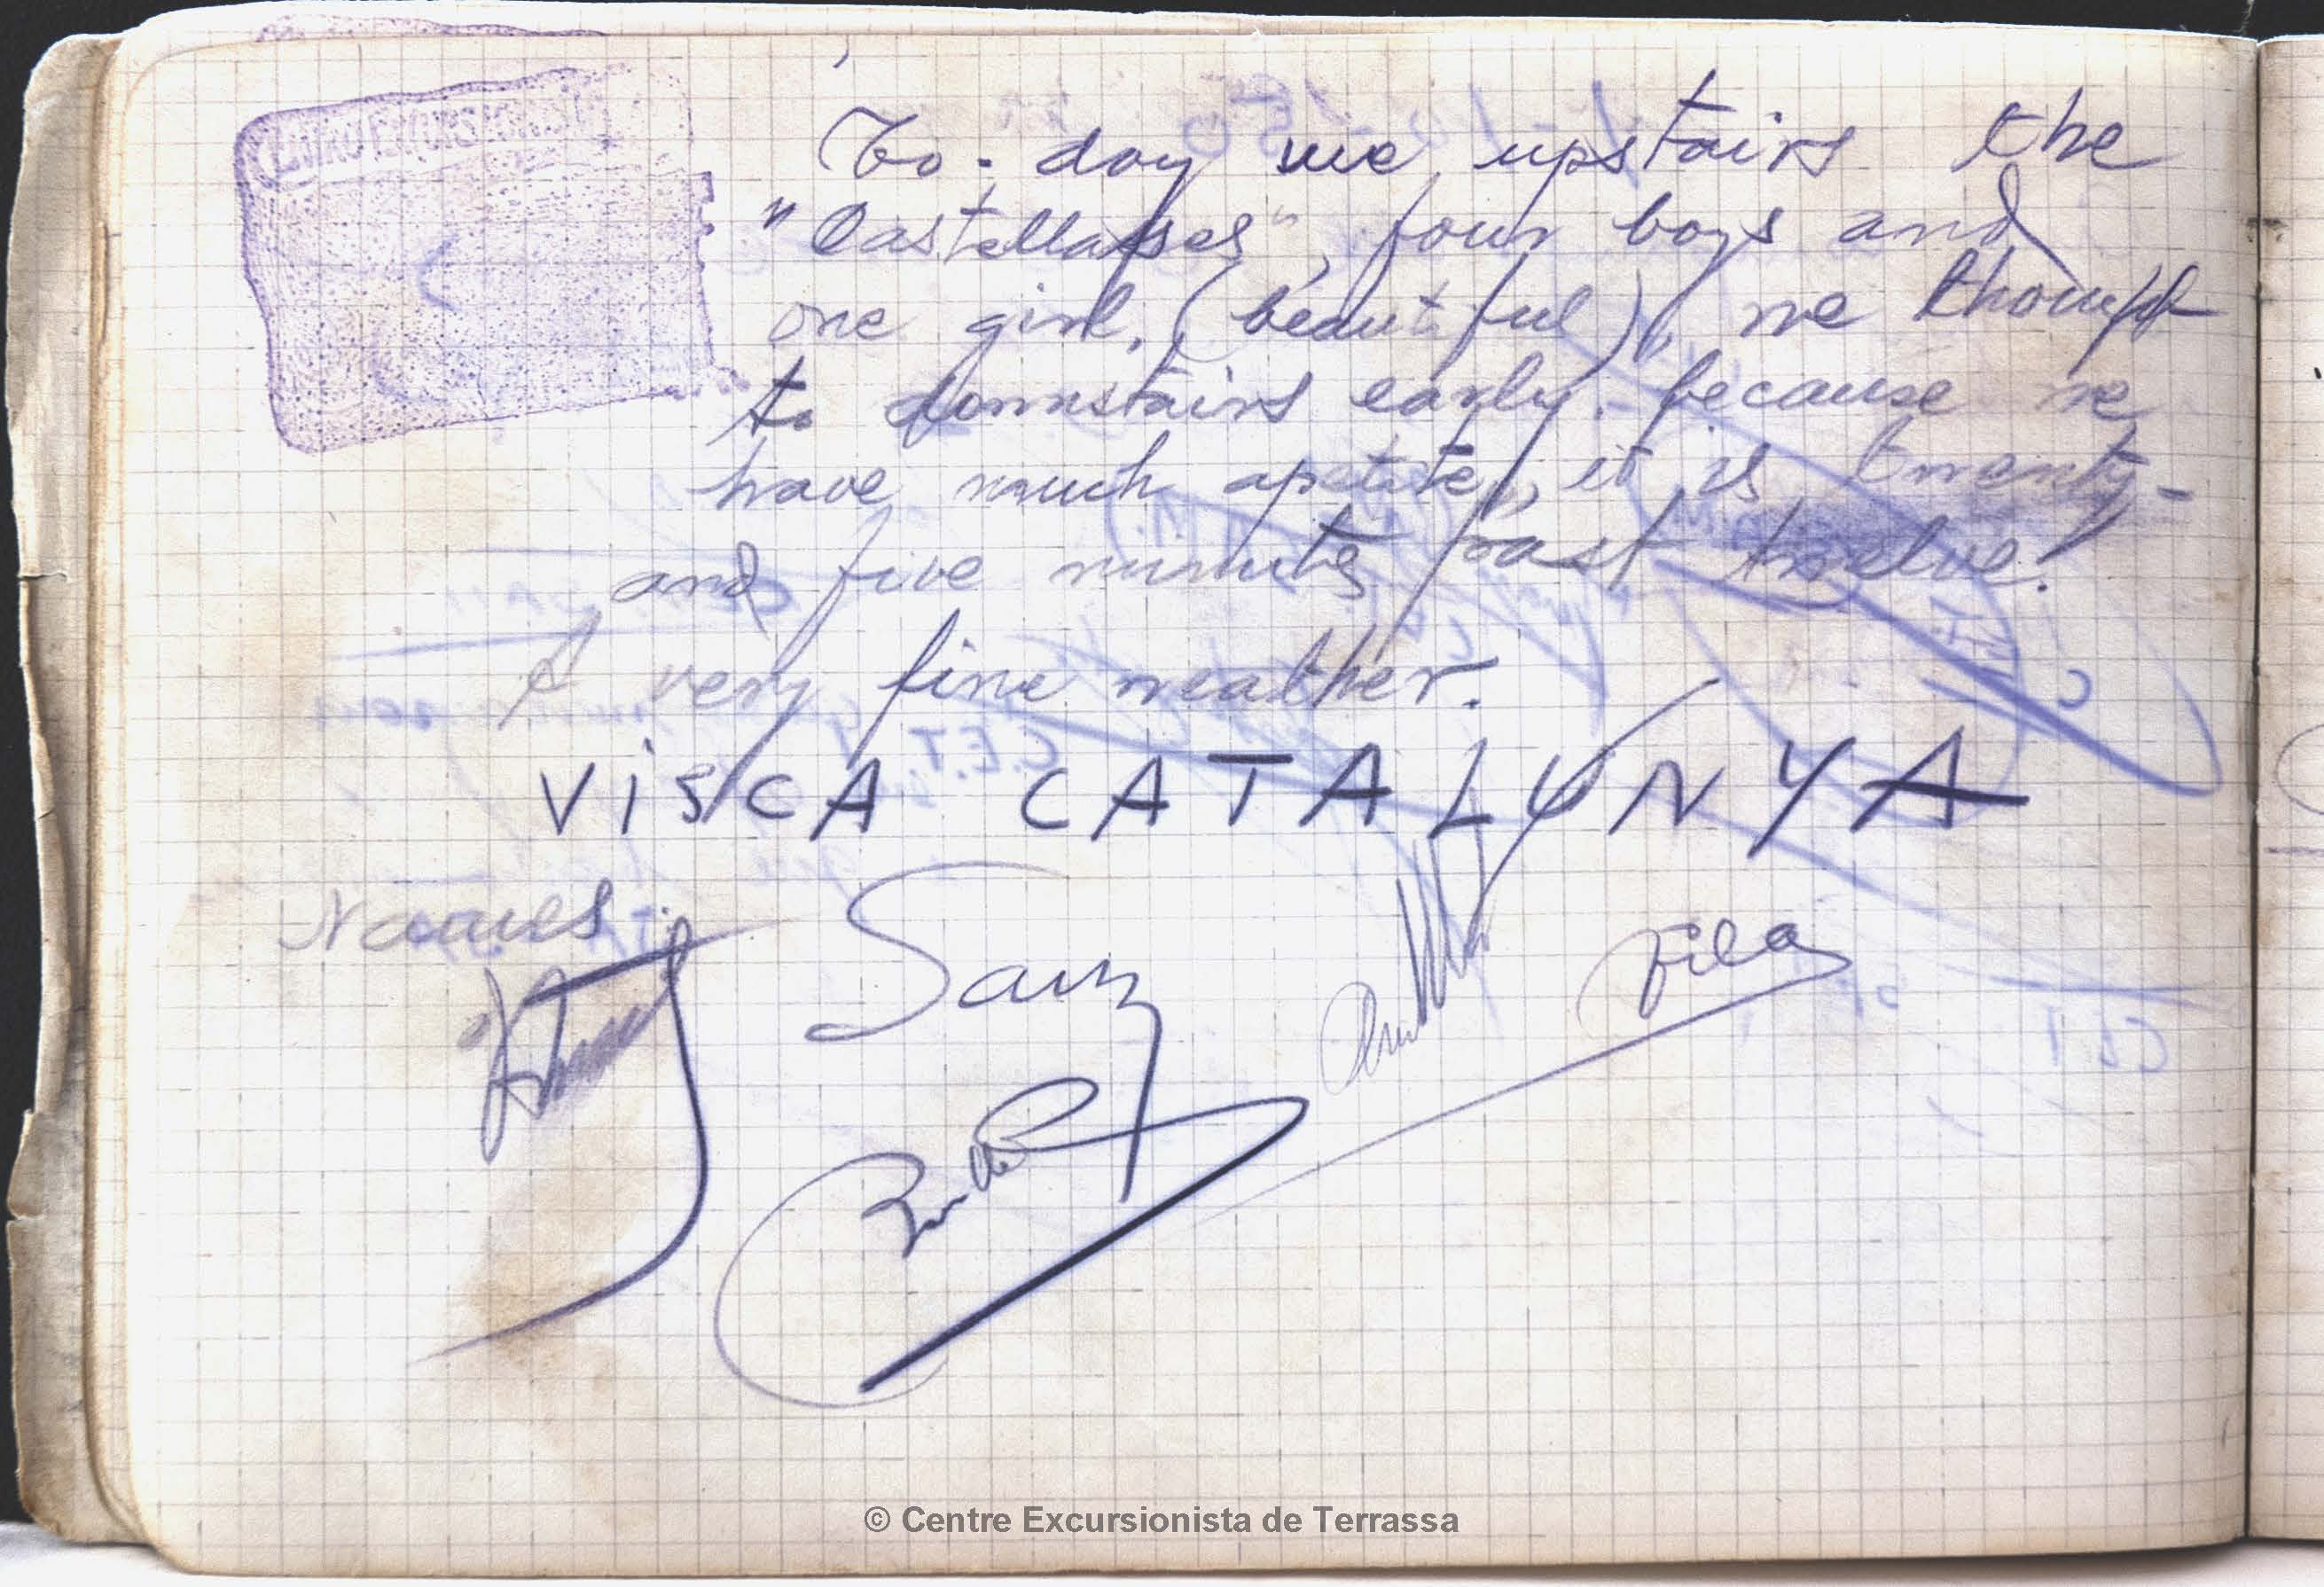 CENTRO EXCURSIONISTA
To-day we upstairs the
"Castellasses", four boys and
one girl, (beautiful), we thougt
to downstairs early. because we
have much apetite, it is twenty-
and five minutes past twelve.
A very fine weather.
VISCA CATALUNYA
Names
Sanz
Fila
© Centre Excursionista de Terrassa